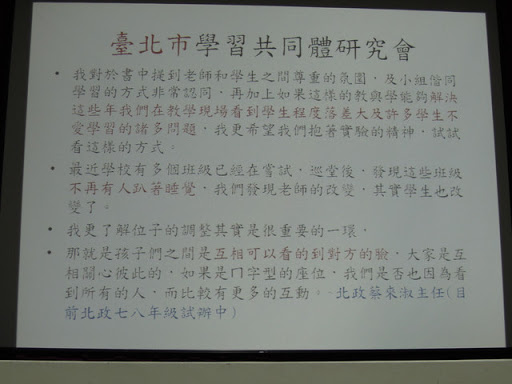 臺北市學習共同體研究會
• 我對於書中提到老師和學生之間尊重的氛圍，及小組偕同
學習的方式非常認同，再加上如果這樣的教與學能夠解決
這些年我們在教學現場看到學生程度落差大及許多學生不
愛學習的諸多問題，我更希望我們抱著實驗的精神，試試
看這樣的方式。
• 最近學校有多個班級已經在嘗試，巡堂後，發現這些班級
不再有人趴著睡覺，我們發現老師的改變，其實學生也改
變了。
• 我更了解位子的調整其實是很重要的一環，
• 那就是孩子們之間是互相可以看的到對方的臉，大家是互
相關心彼此的，如果是ㄇ字型的座位，我們是否也因為看
到所有的人，而比較有更多的互動。-北政蔡來淑主任(目
前北政七八年級試辦中)